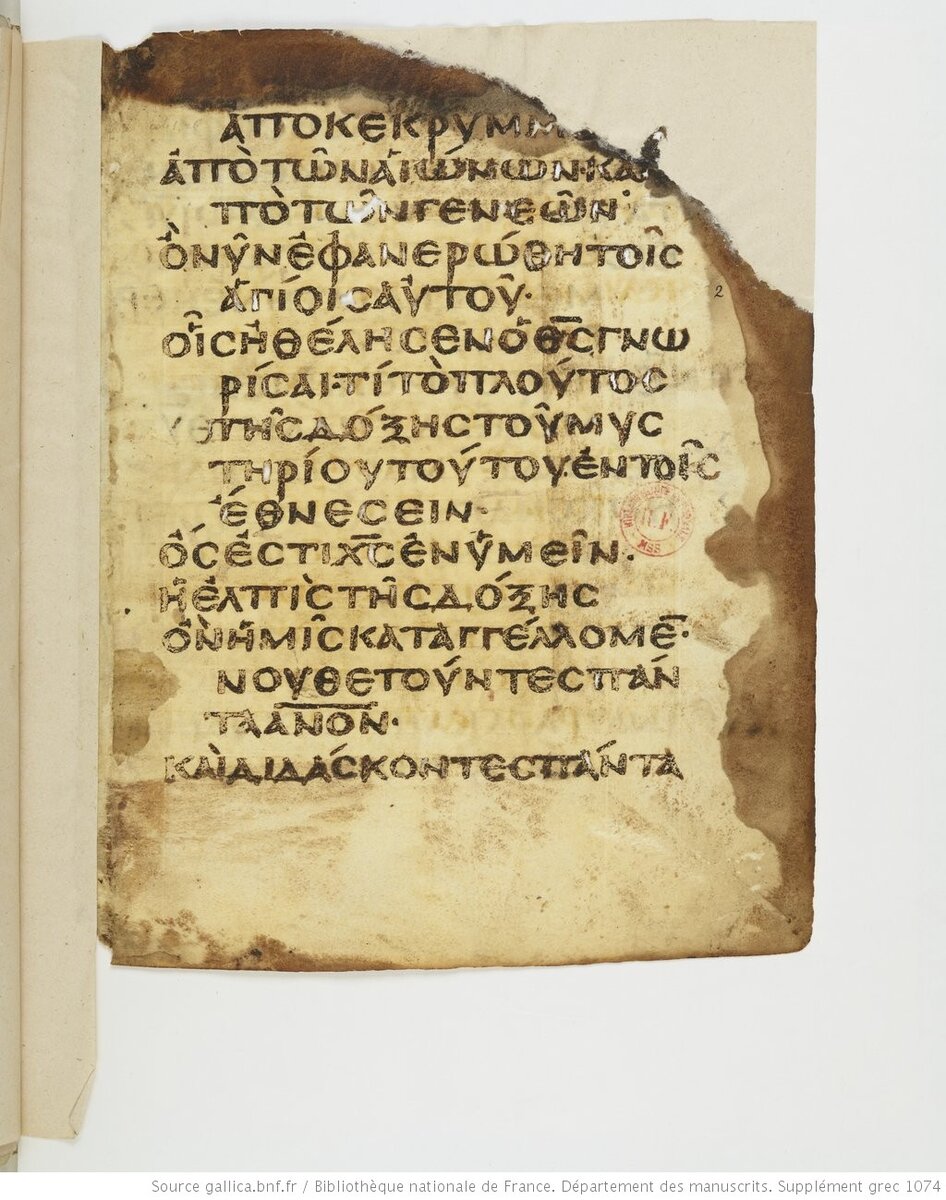 ἀποκεκρυμμ
ἀπὸτῶναἰώνων·κα
πὸτῶνγενεῶν·
ὃνῦνἐφανερώθητοῖς
ἁγίοιςαὐτοῦ·
οἷςἠθέλησενὁθ̅ς̅γνω
ρίσαι·τίτὸπλοῦτος
τῆςδόξηςτοῦμυς
τηρίουτούτουἐντοῖς
ἔθνεσειν·
ὅςἐστιχ̅ς̅ἐνὑμεῖν·
ἡἐλπὶςτῆςδόξης
ὃνἡμῖςκαταγγέλλομε̅·
νουθετοῦντεςπάν
ταα̅ν̅ο̅ν̅·
καὶδιδάσκοντεςπάντα
2
Source gallica.bnf.fr / Bibliothèque nationale de France. Département des manuscrits. Supplément grec 1074